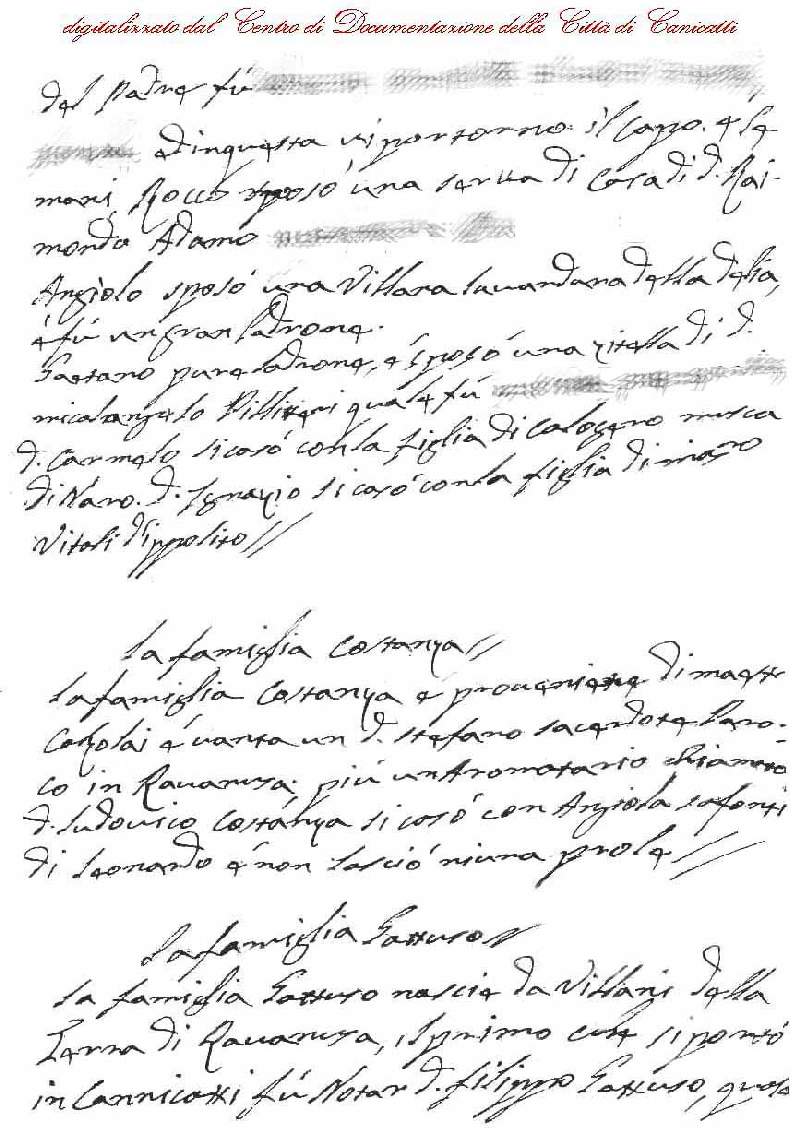 digitalizzato dal Centro di Documentazione della Città di Canicattì
del Padre fù
èdinquesta vi portorno il Capo. e le
mani, Rocco sposò una serva di Casa di d. Rai-
mondo Adamo
Angiolo sposò una Villana lavandara della Delia,
è fù un gran ladrone.
Gaetano pure ladrone, è sposò una zitella di d.
micalangelo Billitteri quale fù
d. Carmelo si casò con la figlia di Calogero musca
di Naro. d. Ignazio si casò con la figlia di mastro
Vitali d'ippolito //
La famiglia Costanza //
La famiglia Costanza è proveniente di mastri
è vanta un d. stefano sacerdote Paro-
co in Ravanusa, più un Aromatario chiamato
d. Ludovico Costanza si casò con Angiola safonti
di Leonardo è non lasciò niuna prole //
La famiglia Gattuso //
La famiglia Gattuso nascie da Villani della
Terra di Ravanusa, il primo che si portò
in Cannicatti fù Notar d. filippo Gattuso, quale